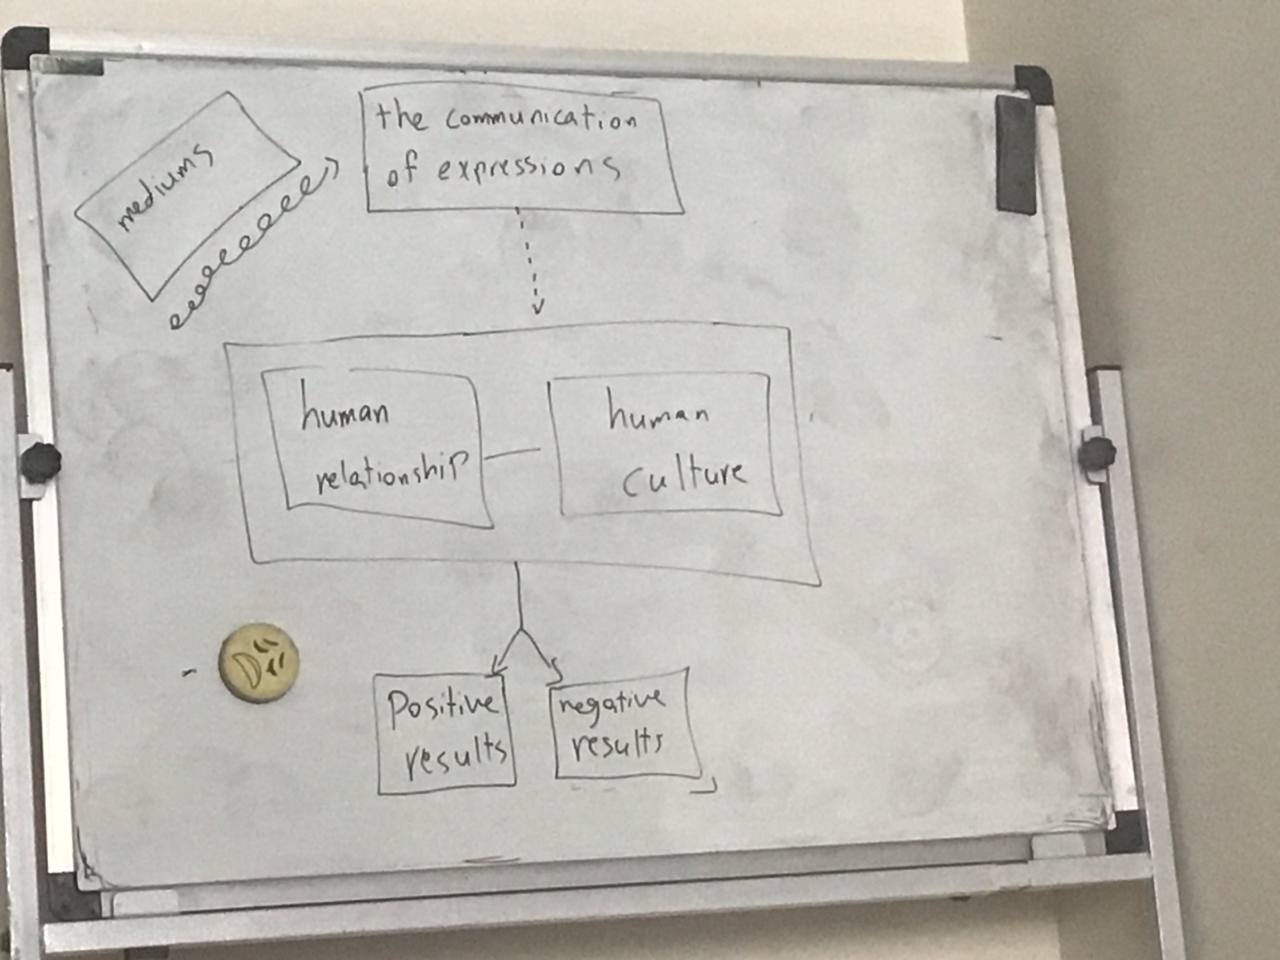 mediums
the communication
of expressions
human
relationship
human
culture
Positive
results
negative
results